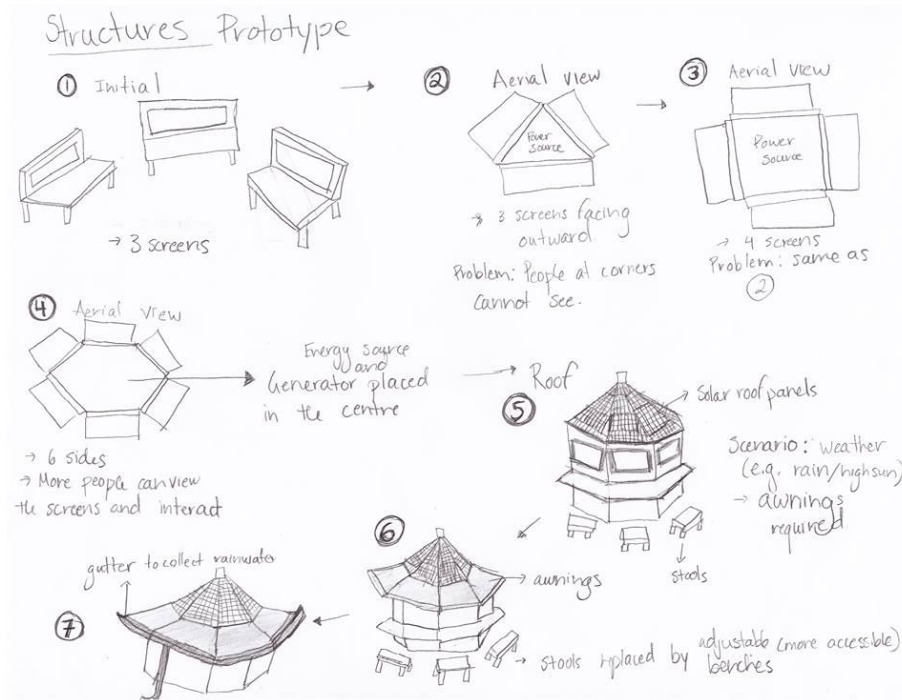 Structures Prototype
① Initial
→ 3 screens
② Aerial view
Power
source
→ 3 screens facing
outward
Problem: People at corners
cannot see.
③ Aerial view
Power
source
→ 4 screens
Problem: same as
②
④ Aerial view
→ 6 sides
→ More people can view
the screens and interact
Energy source
and
Generator placed
in the centre
Roof
⑤
Solar roof panels
Scenario: weather
(e.g. rain/high sun)
→ awnings
required
stools
⑥
awnings
stools replaced by adjustable (more accessible)
benches
⑦
gutter to collect rainwater